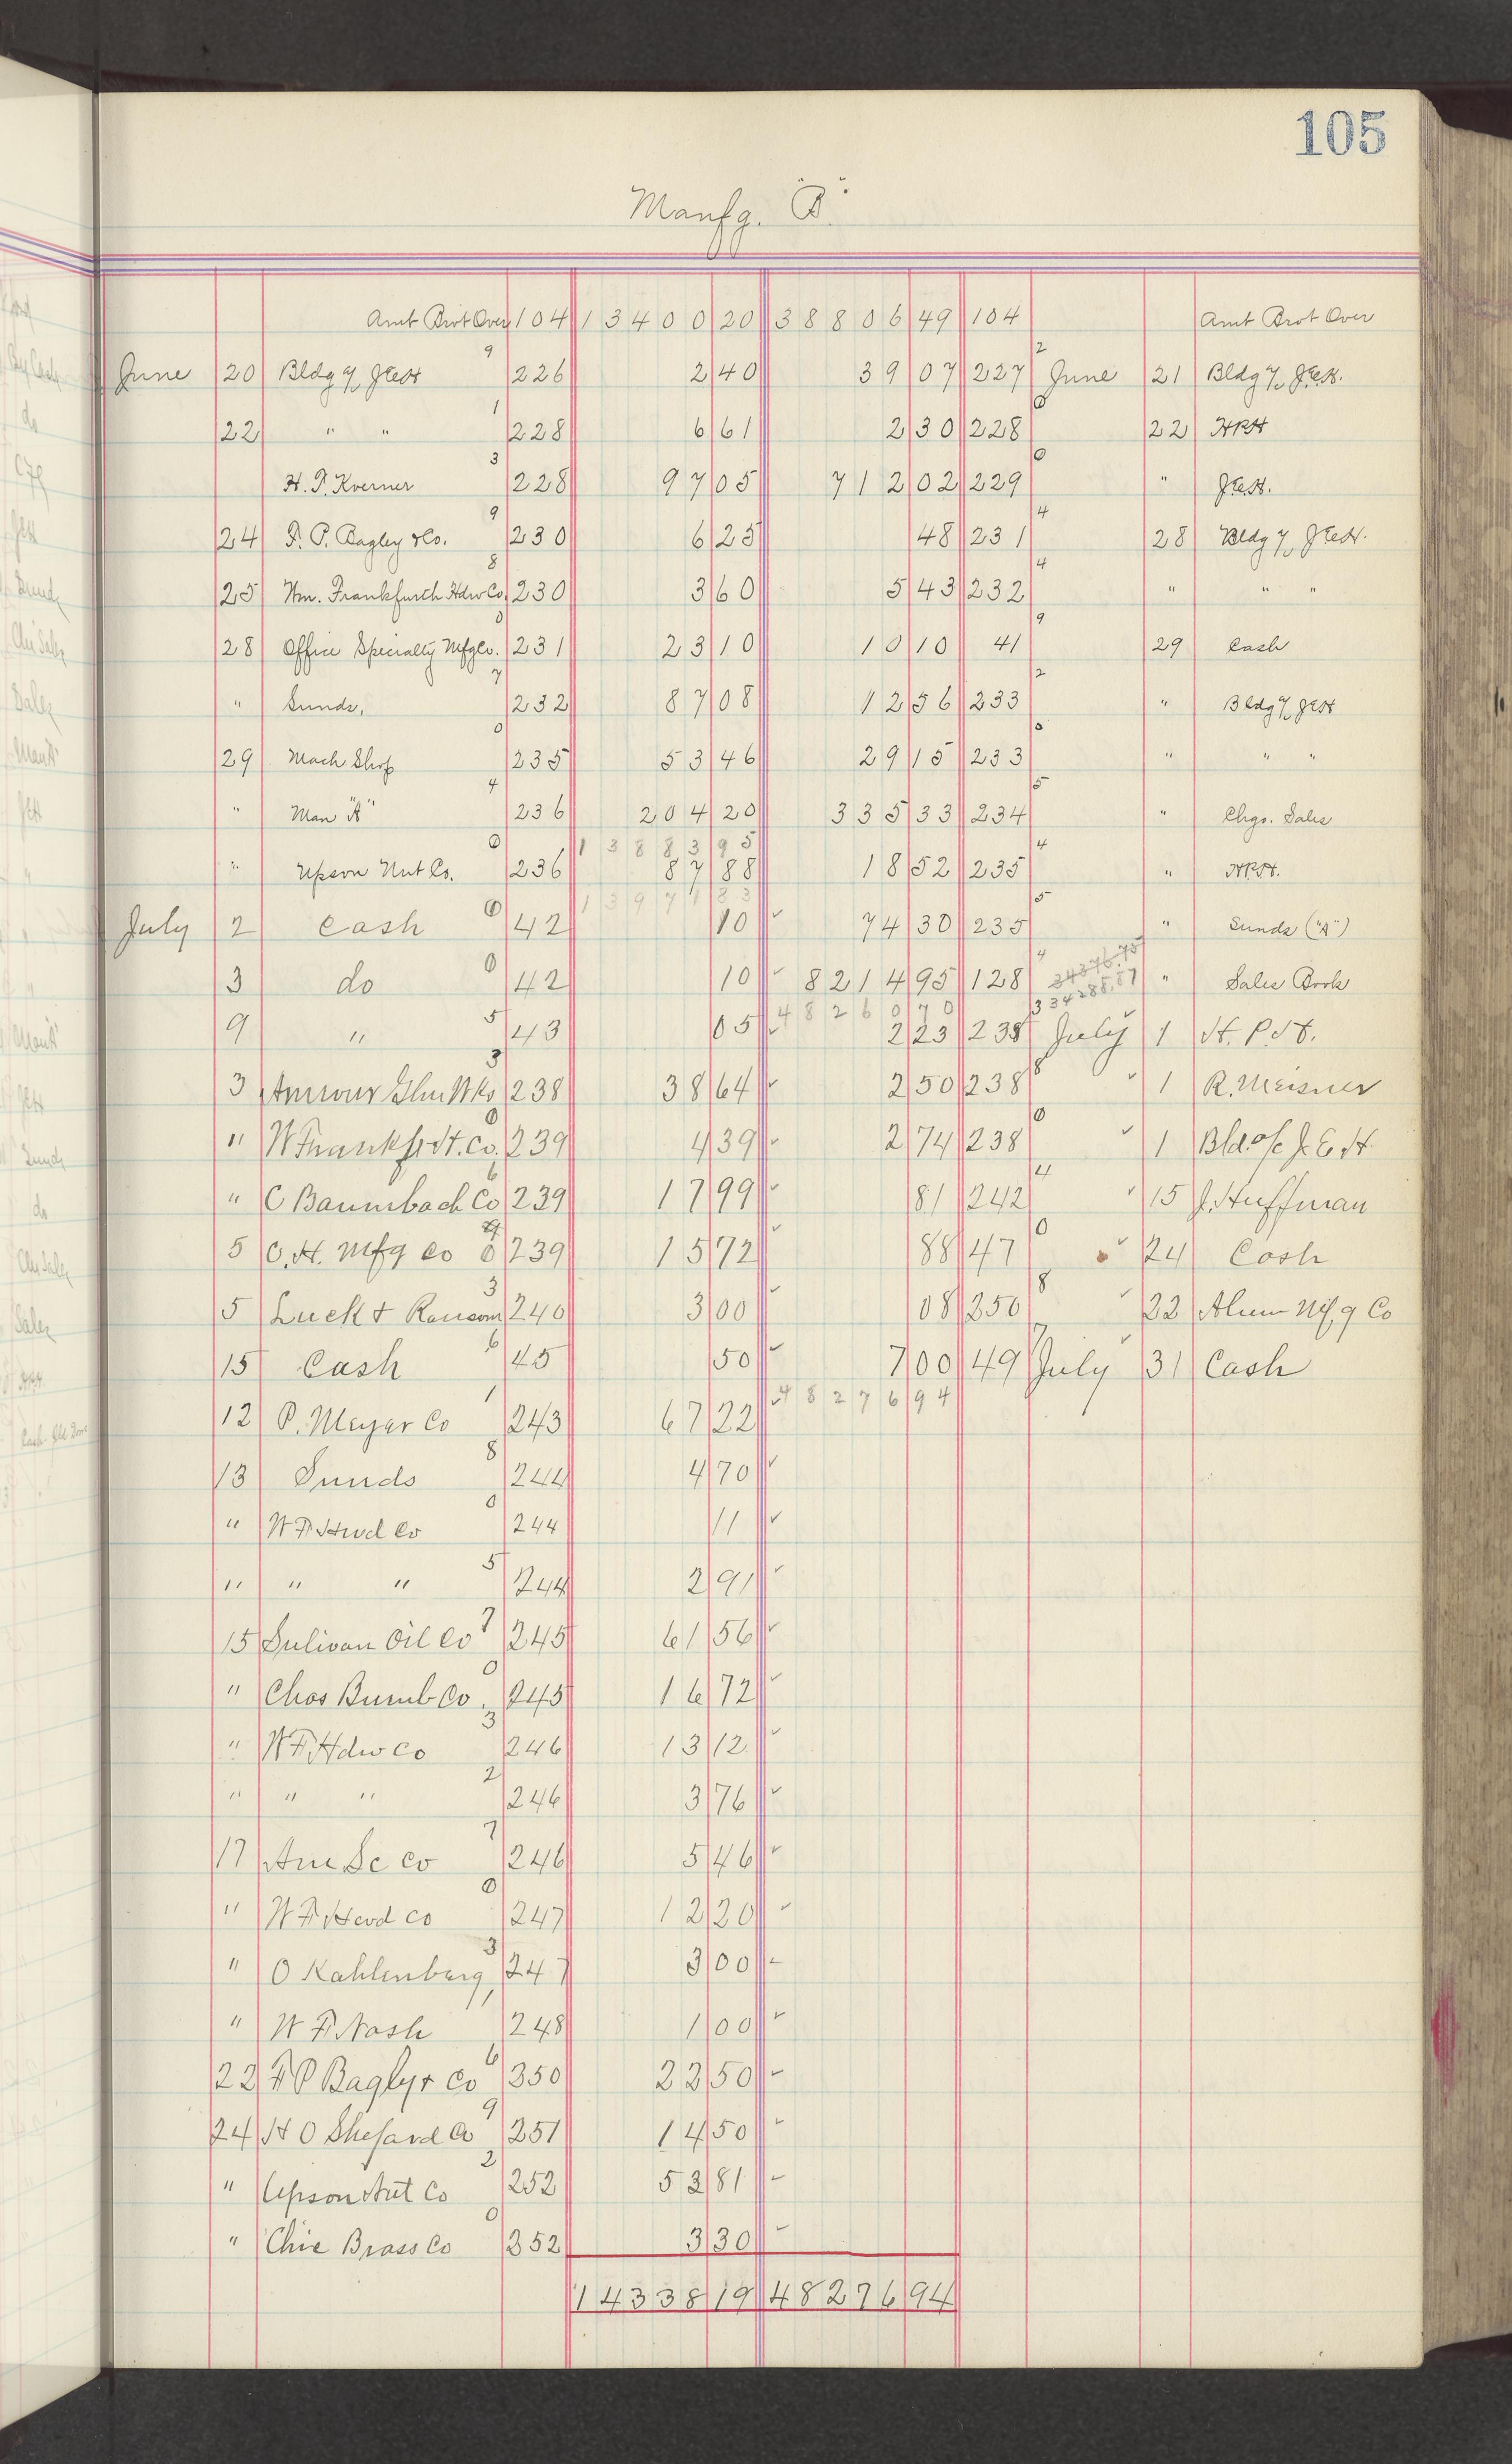 105
Manfg. "B"
Amt Brot Over 104 13400 20 38806 49 104 Amt Brot Over
June 20 Bldg % JEH 9 226 2 40 39 07 227 2 June 21 Bldg % J.E.H.
22 " " 1 228 6 61 2 30 228 0 22 HPH
H. P. Kverner 3 228 97 05 712 02 229 0 " J.E.H.
24 F. P. Bagley & Co. 9 230 6 25 48 231 4 28 Bldg % J.E.H.
25 Wm. Frankfurth Hdw Co. 8 230 3 60 5 43 232 4 " " "
28 Office Specialty Mfg Co. 0 231 23 10 10 10 41 9 29 Cash
" Sunds. 7 232 87 08 12 56 233 2 " Bldg % JEH
29 Mach Shop 0 235 53 46 29 15 233 0 " " "
" Man "A" 4 236 204 20 335 33 234 5 " Chgs. Sales
13883 95
" Upson Nut Co. 0 236 87 88 18 52 235 4 " H.P.H.
13971 83
July 2 Cash 0 42 10 ✓ 74 30 235 5 " Sunds ("A")
3 do 0 42 10 ✓ 8214 95 128 4 34376.75 " Sales Book
48260 70 34288.87
9 " 5 43 05 ✓ 2 23 238 3 July 1 H. P. H.
3 Armour Glue Wks 3 238 38 64 ✓ 2 50 238 8 ✓ 1 R. Meisner
" W Frankf. H. Co. 0 239 4 39 ✓ 2 74 238 0 ✓ 1 Bld. o/c J. E. H.
" C Baumbach Co 6 239 17 99 ✓ 81 242 4 ✓ 15 J. Huffman
5 O. H. Mfg Co 0 239 15 72 ✓ 88 47 0 ✓ 24 Cash
5 Luck & Ransom 3 240 3 00 ✓ 08 250 8 22 Alum Mfg Co
15 Cash 6 45 50 ✓ 7 00 49 7 July ✓ 31 Cash
12 P. Meyer Co 1 243 67 22 ✓ 48276 94
13 Sunds 8 244 4 70 ✓
" W F Hwd Co 0 244 11 ✓
" " " 5 244 2 91 ✓
15 Sulivan Oil Co 7 245 61 56 ✓
" Chas Bumb Co. 0 245 16 72 ✓
" W F Hdw Co 3 246 13 12 ✓
" " " 2 246 3 76 ✓
17 Am Sc Co 7 246 5 46 ✓
" W F Hwd Co 0 247 12 20 ✓
" O Kahlenberg 3 247 3 00 ✓
" W F Nash 1 248 1 00 ✓
22 F P Bagly & Co 6 350 22 50 ✓
24 H O Shepard Co 9 251 14 50 ✓
" Upson Nut Co 2 252 52 81 ✓
" Chic Brass Co 0 352 3 30 ✓
14338 19 48276 94